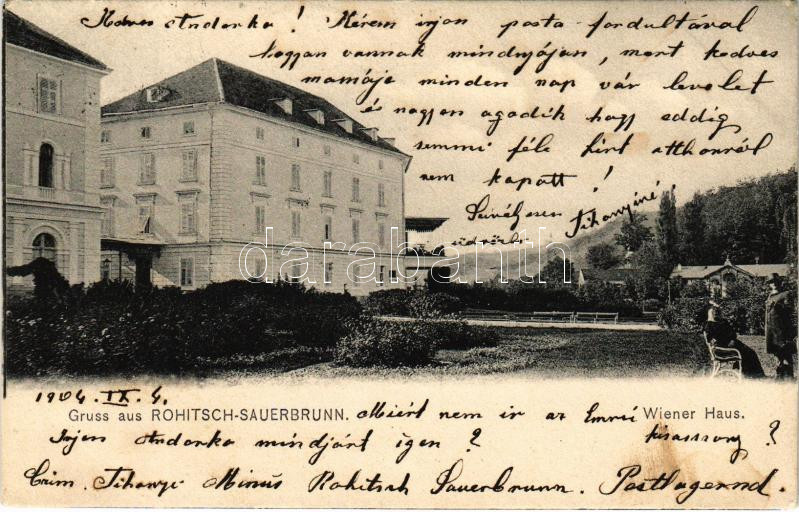 Kedves Andorka! Kérem irjon posta fordultával
hogyan vannak mindnyájan, mert kedves
mamája minden nap vár levelet
és nagyon agodik hogy eddig
semmi féle hirt otthonról
nem kapott!
Szivélyesen
üdvözli Tihanyiné
darabanth.com
1904. IX. 4.
Gruss aus ROHITSCH-SAUERBRUNN. Miért nem ir az Emmi Wiener Haus.
Irjon Andorka mindjárt igen? kisasszony?
Czim. Tihanyi Minus Rohitsch Sauerbrunn. Postlagernd.